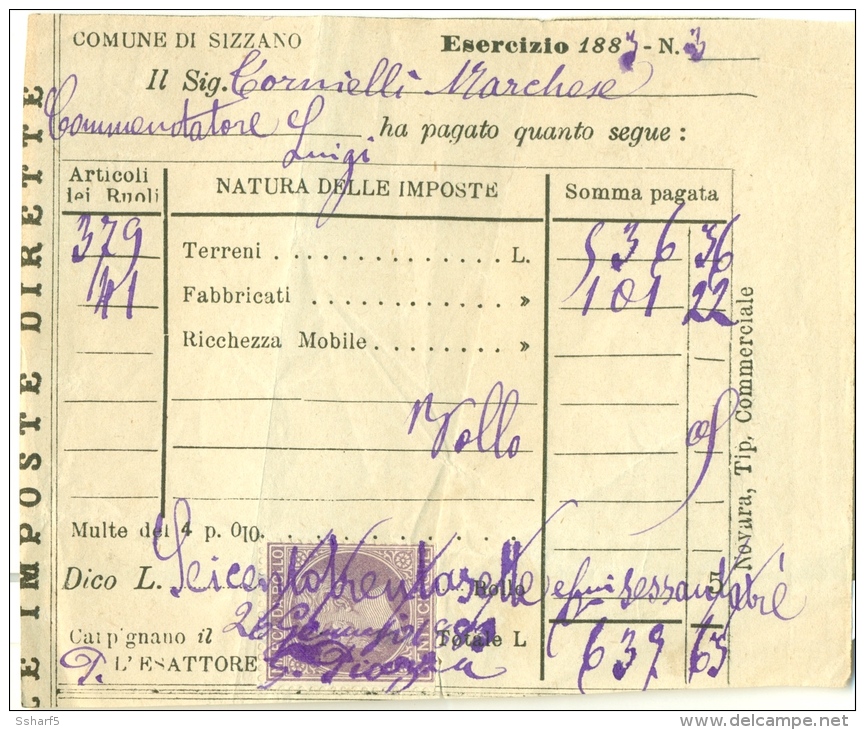 COMUNE DI SIZZANO
Esercizio 1883 - N. 3
Il Sig. Tornielli Marchese
Commendatore Luigi ha pagato quanto segue :
Articoli dei Ruoli NATURA DELLE IMPOSTE Somma pagata
379 Terreni L. 536 36
141 Fabbricati » 101 22
Ricchezza Mobile »
Bollo 05
Multe del 4 p. 0[0.
Bollo 5
Dico L. Seicentotrentasette e sessantatrè
Carpignano il Totale L 637 63
L'ESATTORE
LE IMPOSTE DIRETTE
Novara, Tip. Commerciale
MARCA DA BOLLO
Ssharf5
delcampe.net